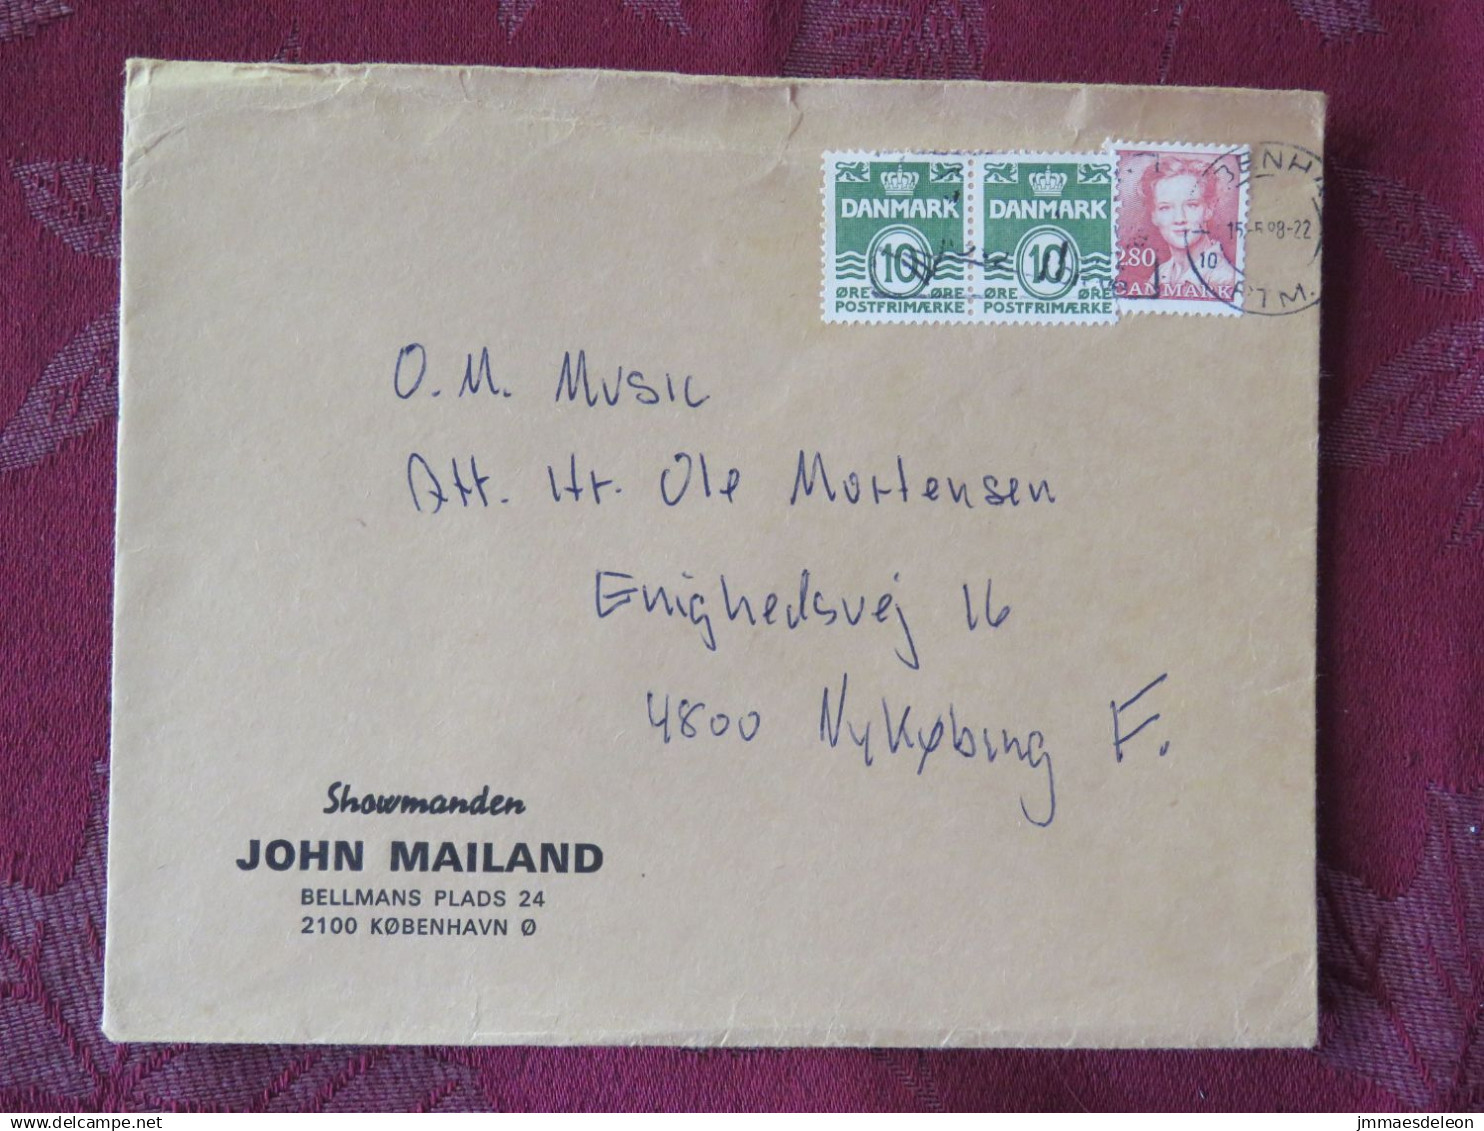 DANMARK
10
ØRE ØRE
POSTFRIMÆRKE
DANMARK
10
ØRE ØRE
POSTFRIMÆRKE
2.80
DANMARK
10
O.M. Music
Att. Hr. Ole Mortensen
Enighedsvej 16
4800 Nykøbing F.
Showmanden
JOHN MAILAND
BELLMANS PLADS 24
2100 KØBENHAVN Ø
jmmaesdeleon